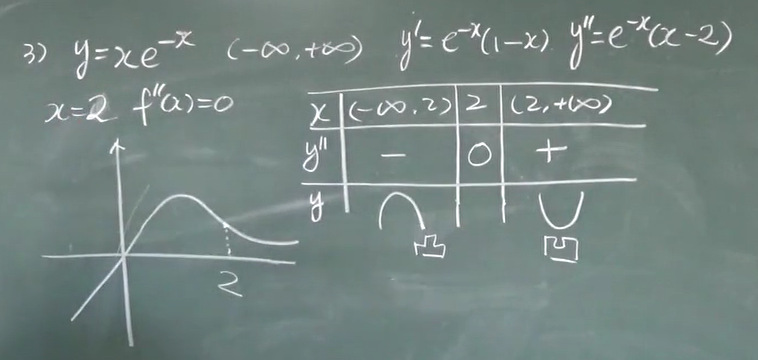 3) y=xe^{-x} (-∞,+∞) y'=e^{-x}(1-x) y''=e^{-x}(x-2)
x=2 f''(x)=0
x (-∞,2) 2 (2,+∞)
y'' - 0 +
y
凸 凹
2